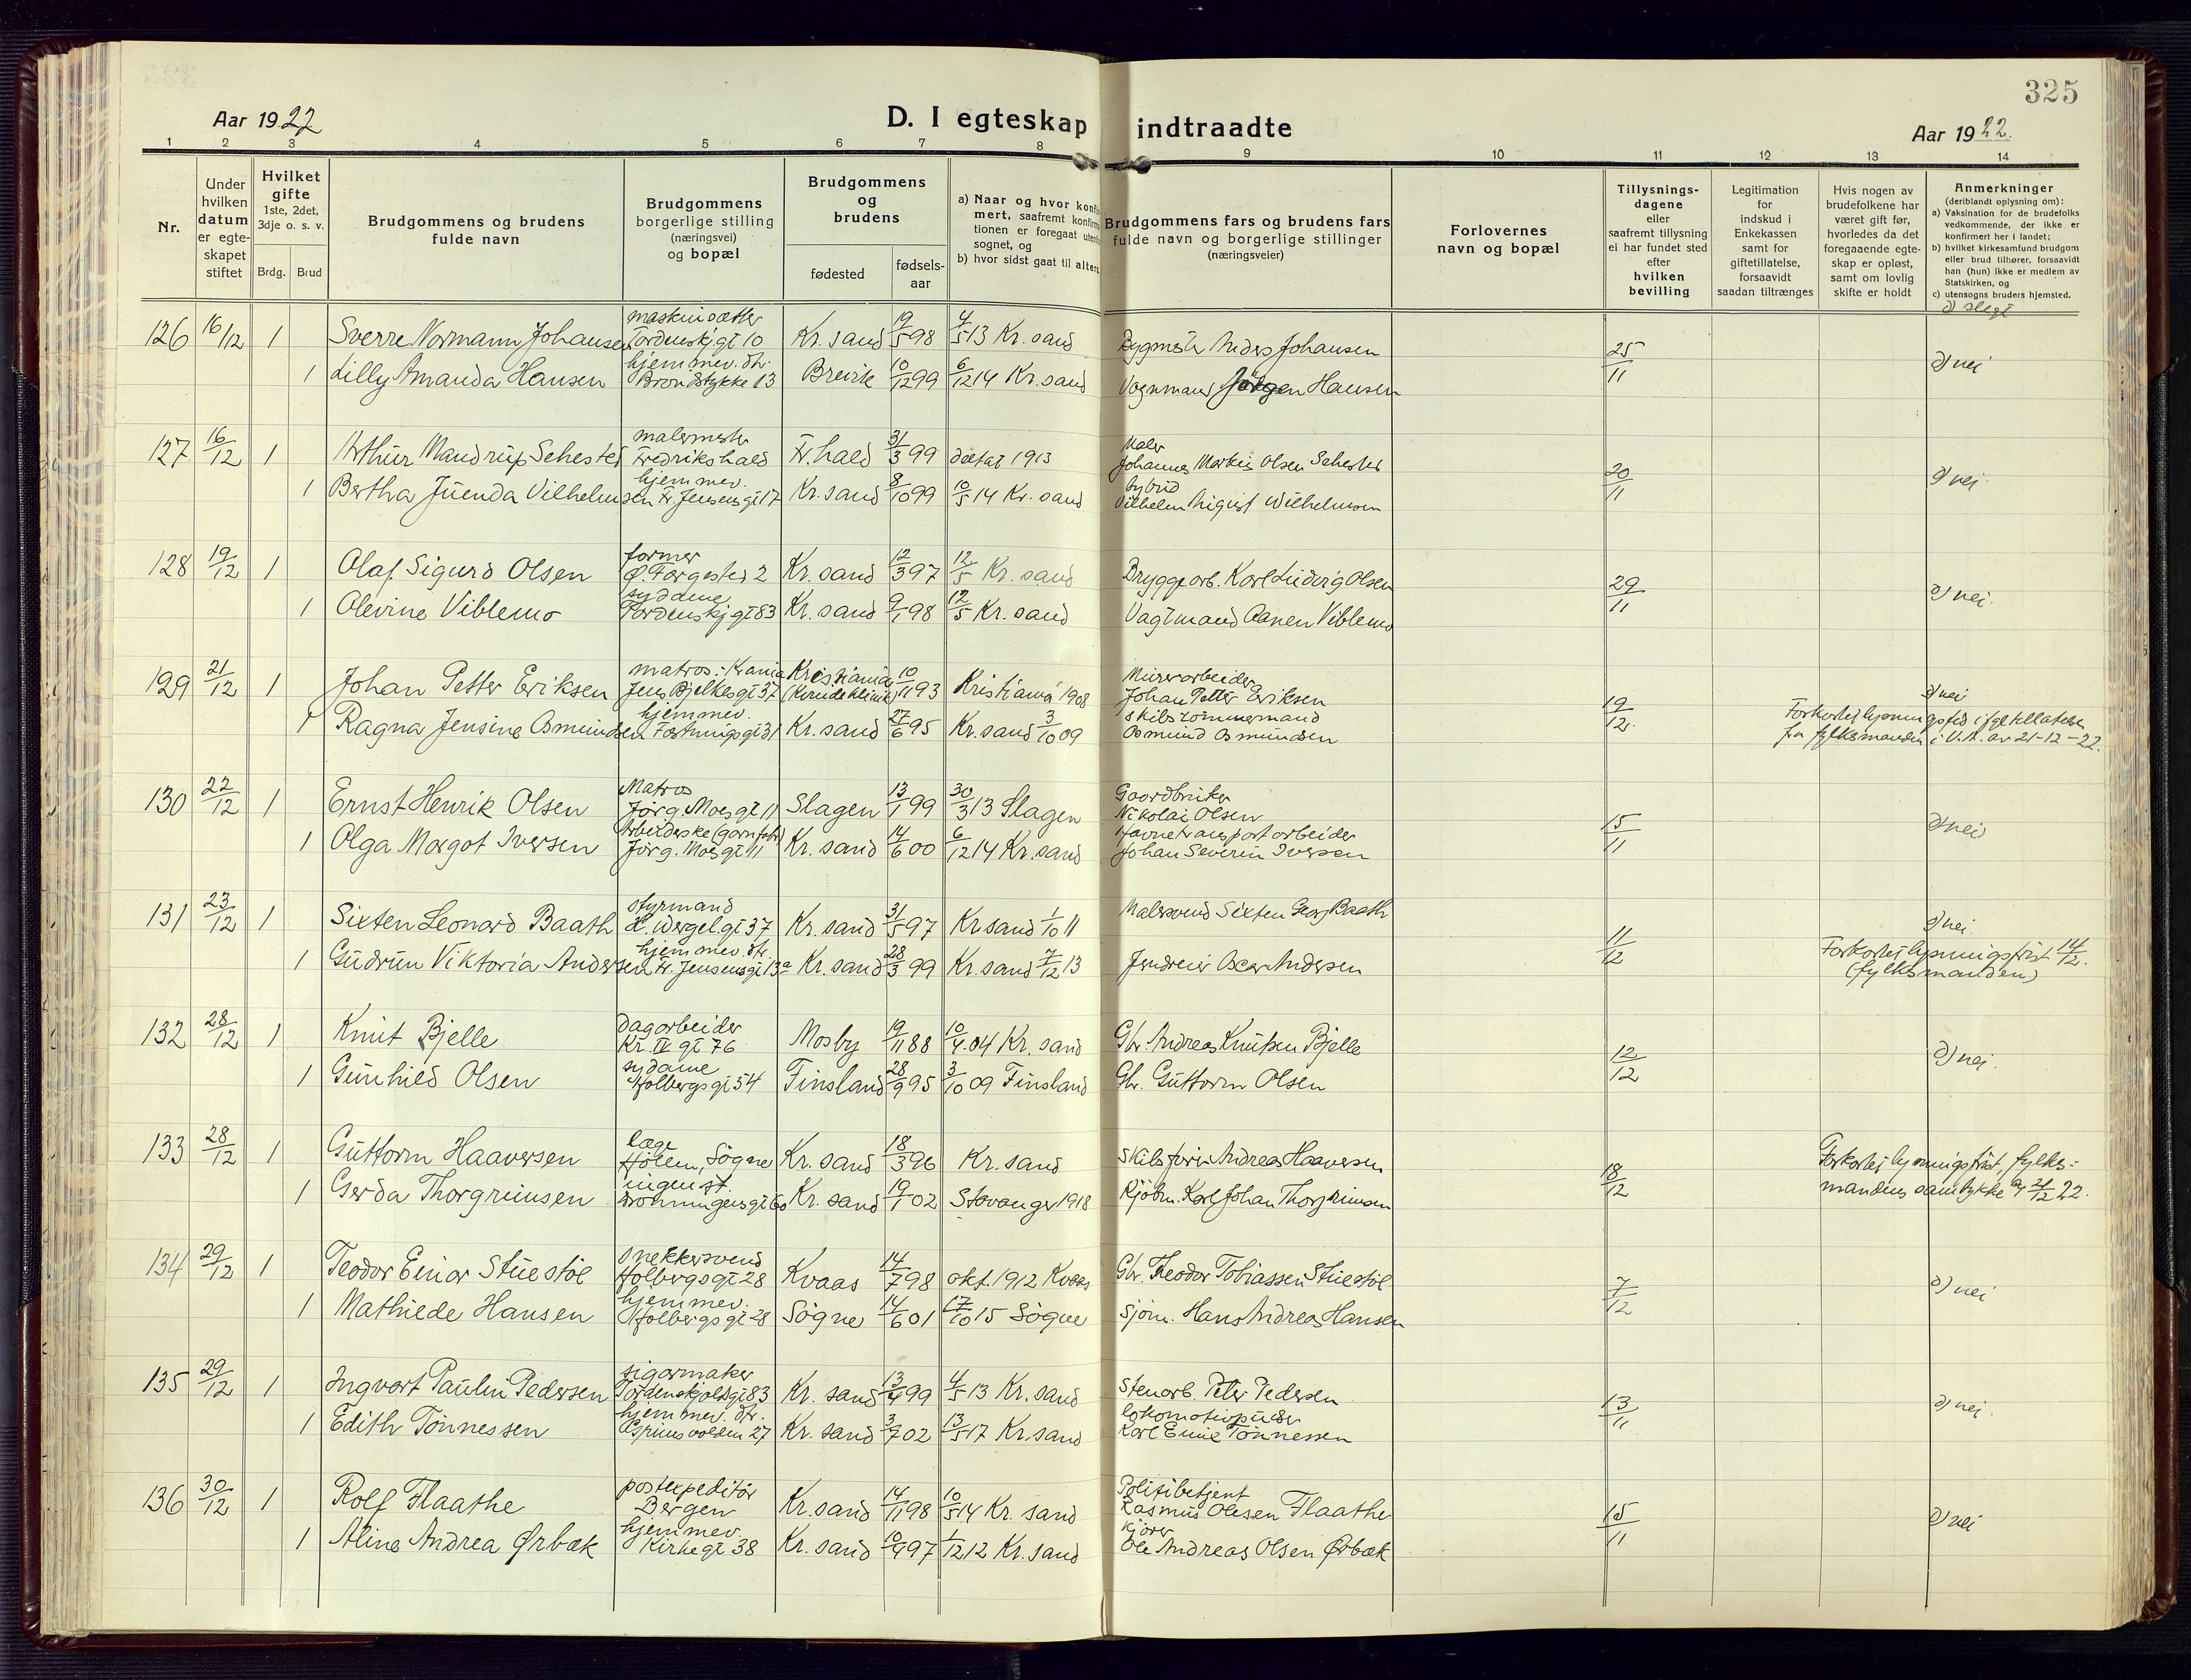 325
Aar 1922
D. I egteskap indtraadte
Aar 1922.
1 2 3 4 5 6 7 8 9 10 11 12 13 14
Nr.
Under hvilken datum er egteskapet stiftet
Hvilket gifte 1ste, 2det, 3dje o. s. v.
Brdg. Brud
Brudgommens og brudens fulde navn
Brudgommens borgerlige stilling (næringsvei) og bopæl
Brudgommens og brudens
fødested
fødsels-aar
a) Naar og hvor konfirmert, saafremt konfirmationen er foregaat utenfor sognet, og
b) hvor sidst gaat til alters
Brudgommens fars og brudens fars fulde navn og borgerlige stillinger (næringsveier)
Forlovernes navn og bopæl
Tillysnings-dagene eller saafremt tillysning ei har fundet sted efter hvilken bevilling
Legitimation for indskud i Enkekassen samt for giftetillatelse, forsaavidt saadan tiltrænges
Hvis nogen av brudefolkene har været gift før, hvorledes da det foregaaende egteskap er opløst, samt om lovlig skifte er holdt
Anmerkninger (deriblandt oplysning om):
a) Vaksination for de brudefolks vedkommende, der ikke er konfirmert her i landet;
b) hvilket kirkesamfund brudgom eller brud tilhører, forsaavidt han (hun) ikke er medlem av Statskirken, og
c) utensogns bruders hjemsted.
d) slegt
126 16/12 1 Sverre Normann Johansen maskinsætter Tordenskj.gt 10 Kr. sand 19/5 98 4/5 13 Kr. sand Bygmester Anders Johansen 25/11 d) nei
1 Lilly Amanda Hansen hjemmev. dtr. Brondstykke 13 Brevik 10/12 99 6/12 14 Kr. sand Vognmand Jørgen Hansen
127 16/12 1 Arthur Mandrup Sehested malermester Fredrikshald Fr. hald 31/3 99 1913 Maler Johannes Olsen Sehested 20/11 d) nei
1 Bertha Juenda Vilhelmsen hjemmev. Fr. Jensensgt 17 Kr. sand 8/10 99 10/5 14 Kr. sand bybud Vilhelm August Wilhelmsen
128 19/12 1 Olaf Sigurd Olsen former Kr. sand 12/3 97 12/5 Kr. sand Bryggearb. Karl Ludvig Olsen 29/11 d) nei.
1 Olevine Viblemo sydame Tordenskj.gt 83 Kr. sand 9/1 98 12/5 Kr. sand Vagtmand Aanen Viblemo
129 21/12 1 Johan Petter Eriksen matros: Kr.ania Jens Bjelkesgt 37 Kristiania (Kvindeklinik) 10/11 93 Kristiania 1908 Murerarbeider Johan Petter Eriksen 19/12. d) nei
1 Ragna Jensine Osmundsen hjemmev. Festningsgt 31 Kr. sand 27/6 95 Kr. sand 3/10 09 skibstømmermand Osmund Osmundsen Forkortet lysningstid ifølge tillatelse fra fylkesmanden i V.A. av 21-12-22.
130 22/12 1 Ernst Henrik Olsen Matros Jørg. Moes gt 11 Slagen 13/1 99 30/3 13 Slagen Gaardbruker Nikolai Olsen 15/11 d) nei
1 Olga Margot Iversen Arbeiderske (garnfabr) Jørg. Moes gt 11 Kr. sand 14/6 00 6/12 14 Kr. sand havnetransportarbeider Johan Severin Iversen
131 23/12 1 Sixten Leonard Baath styrmand H. Wergel.gt 37 Kr. sand 31/5 97 Kr sand 1/10 11 Malersvend Sixten Georg Baath 11/12 d) nei.
1 Gudrun Viktoria Andersen hjemmev. dtr. Fr. Jensensgt 13a Kr. sand 28/3 99 Kr. sand 7/12 13 Oscar Andersen Forkortet lysningsfrist 14/12. (fylkesmanden)
132 28/12 1 Knut Bjelle Dagarbeider Kr. IV gt 76 Mosby 19/11 88 10/4 04 Kr. sand Gbr. Andreas Knutsen Bjelle 12/12 d) nei.
1 Gunhild Olsen sydame Holbergsgt 54 Finsland 28/9 95 3/10 09 Finsland Gbr. Guttorm Olsen
133 28/12 1 Guttorm Haaversen læge Høllen, Søgne Kr. sand 18/3 96 Kr. sand Skibsfører Andreas Haaversen 18/12 Forkortet lysningsfrist, fylkesmandens samtykke av 21/12 22.
1 Gerda Thorgrimsen ingen st. Dronningensgt 60 Kr. sand 19/7 02 Stavanger 1918 Kjøbm. Karl Johan Thorgrimsen
134 29/12 1 Teodor Einar Stuestøl snekkersvend Holbergsgt 28 Kvaas 14/7 98 okt. 1912 Kvaas Gbr. Theodor Tobiassen Stuestøl 7/12 d) nei
1 Mathilde Hansen hjemmev. Holbergsgt 28 Søgne 14/6 01 17/10 15 Søgne Sjøm. Hans Andreas Hansen
135 29/12 1 Ingvart Paulin Pedersen sigarmaker Tordenskjoldsgt 83 Kr. sand 13/4 99 4/5 13 Kr. sand Stenarb. Peter Pedersen 13/11 d) nei.
1 Edith Tønnessen hjemmev. dtr. 27 Kr. sand 3/7 02 13/5 17 Kr. sand lokomotivpudser Karl Emil Tønnessen
136 30/12 1 Rolf Flaathe postexpeditør Bergen Kr. sand 14/11 98 10/5 14 Kr. sand Politibetjent Rasmus Olesen Flaathe 15/11 d) nei
1 Aline Andrea Ørbæk hjemmev. Kirkegt 38 Kr. sand 10/4 97 1/12 12 Kr. sand kjører Ole Andreas Olsen Ørbæk